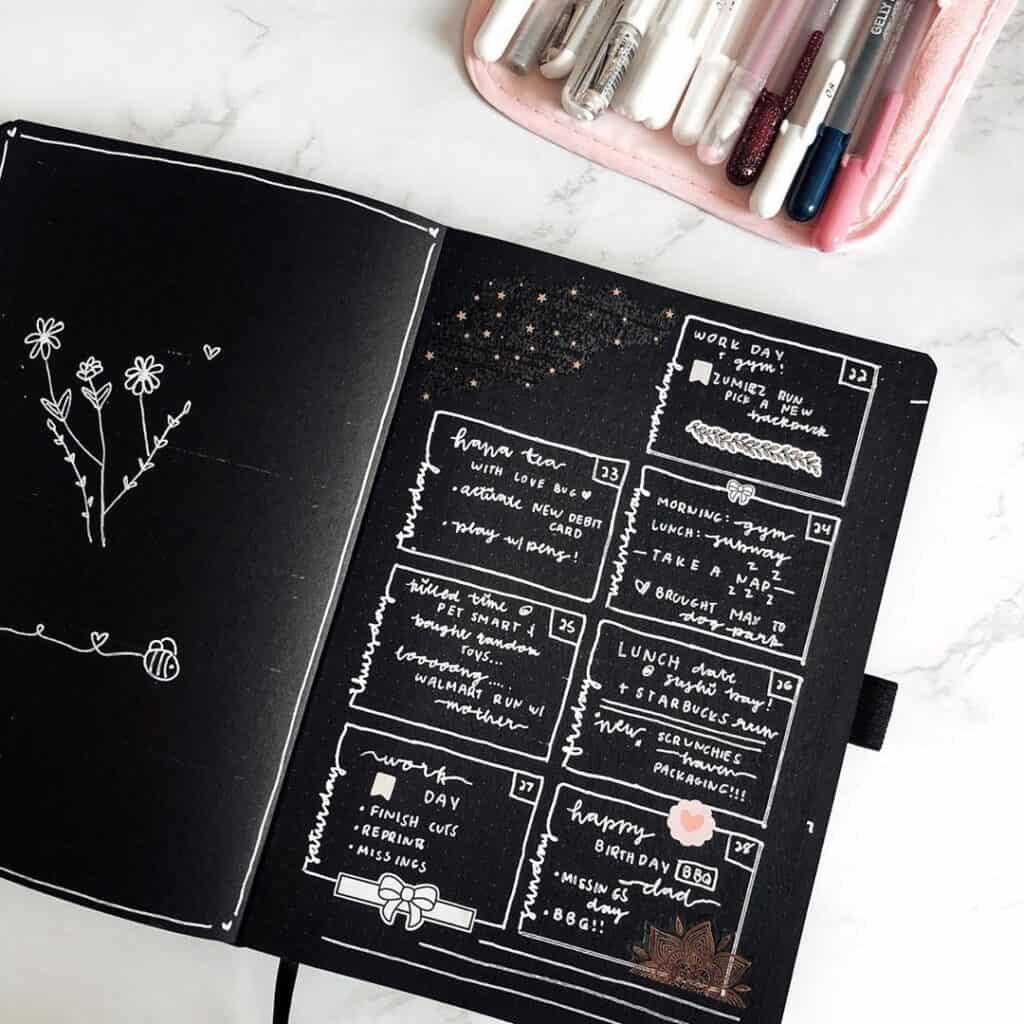 GELLY
08
monday
22
WORK DAY
+ gym!
ZUMIEZ RUN
PICK A NEW
backpack
tuesday
23
hana tea
WITH LOVE BUG
• activate NEW DEBIT
CARD
• play w/ pens!
wednesday
24
MORNING: gym
LUNCH: subway
— TAKE A NAP —
z z z z z
BROUGHT MAY TO
dog park
thursday
25
killed time @
PET SMART :(
baught random
TOYS...
looooong....
WALMART RUN w/
mother
friday
26
LUNCH date
@ sushi bay!
+ STARBUCKS run
• new.
SCRUNCHIES
haven
PACKAGING!!!
saturday
27
work
DAY
• FINISH CUTS
• REPRINTS
• MISSINGS
sunday
28
happy
BIRTHDAY BBQ
dad
• MISSINGS
day
• BBQ!!